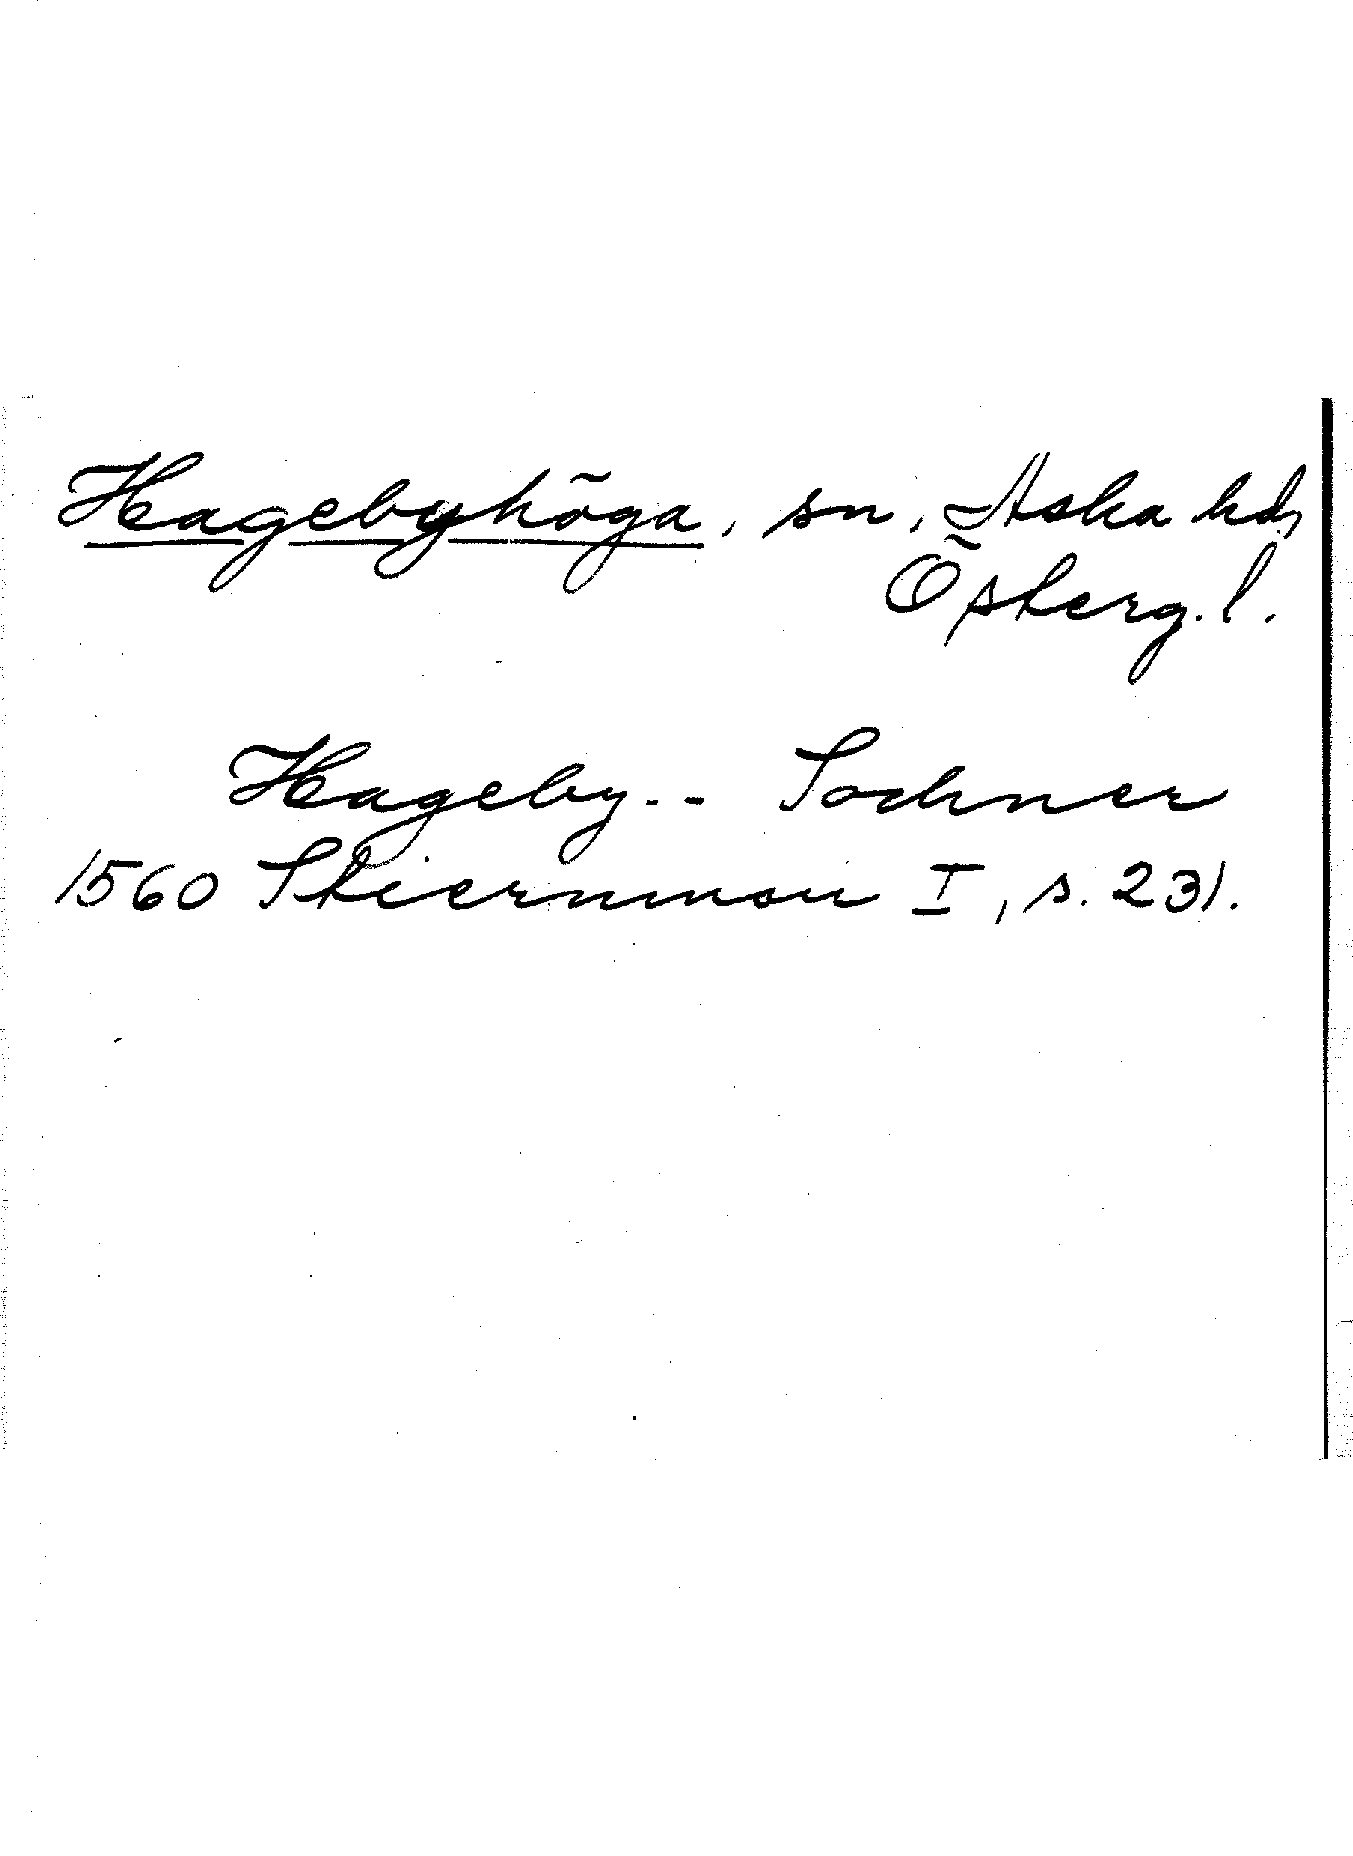 Hagebyhöga, sn, Aska hd,
Österg. l.
Hageby-- Sochner
1560 Stiernman I, s. 231.